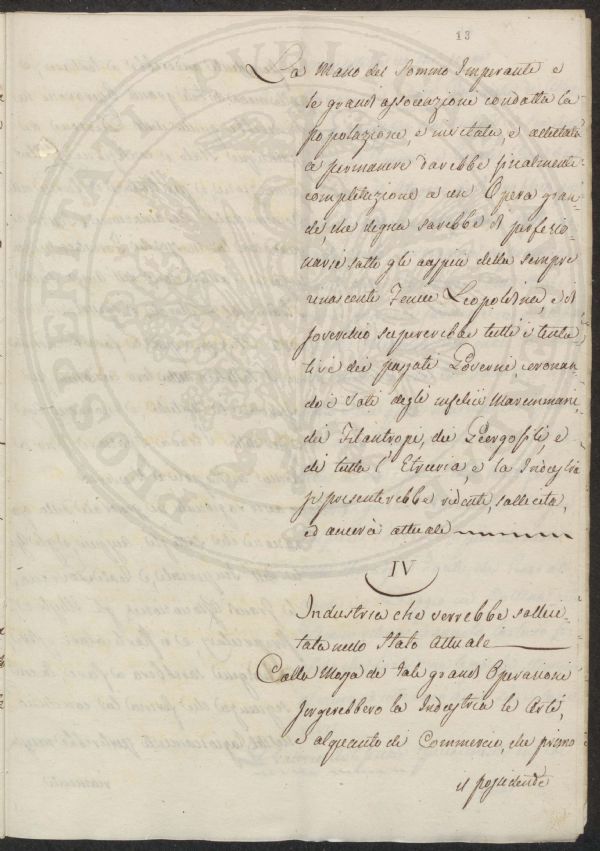 13
La Mano del Sommo Imperante e
le grandi associazione condotta la
popolazione, e invitata, e allettata
a permanere darebbe finalmente
completezione a un Opera gran-
de, che degna sarebbe di perfezio-
narsi sotto gli auspicii della sempre
rinascente Leopoldina, e di
soverchio supererebbe tutti i tenta
tivi dei passati Governi, coronan
do i Voti degli infelici Maremmani,
dei Filantropi, dei Georgofili, e
di tutta l'Etruria, e la Industria
si presenterebbe ridente, sollecita,
ed ancora attuale
IV
Industria che verrebbe solleci-
tata nello Stato Attuale
Colla Mossa di tale grandi Operazioni
sorgerebbero la Industria le Arti,
e alquanto di Commercio, che primo
il possidente